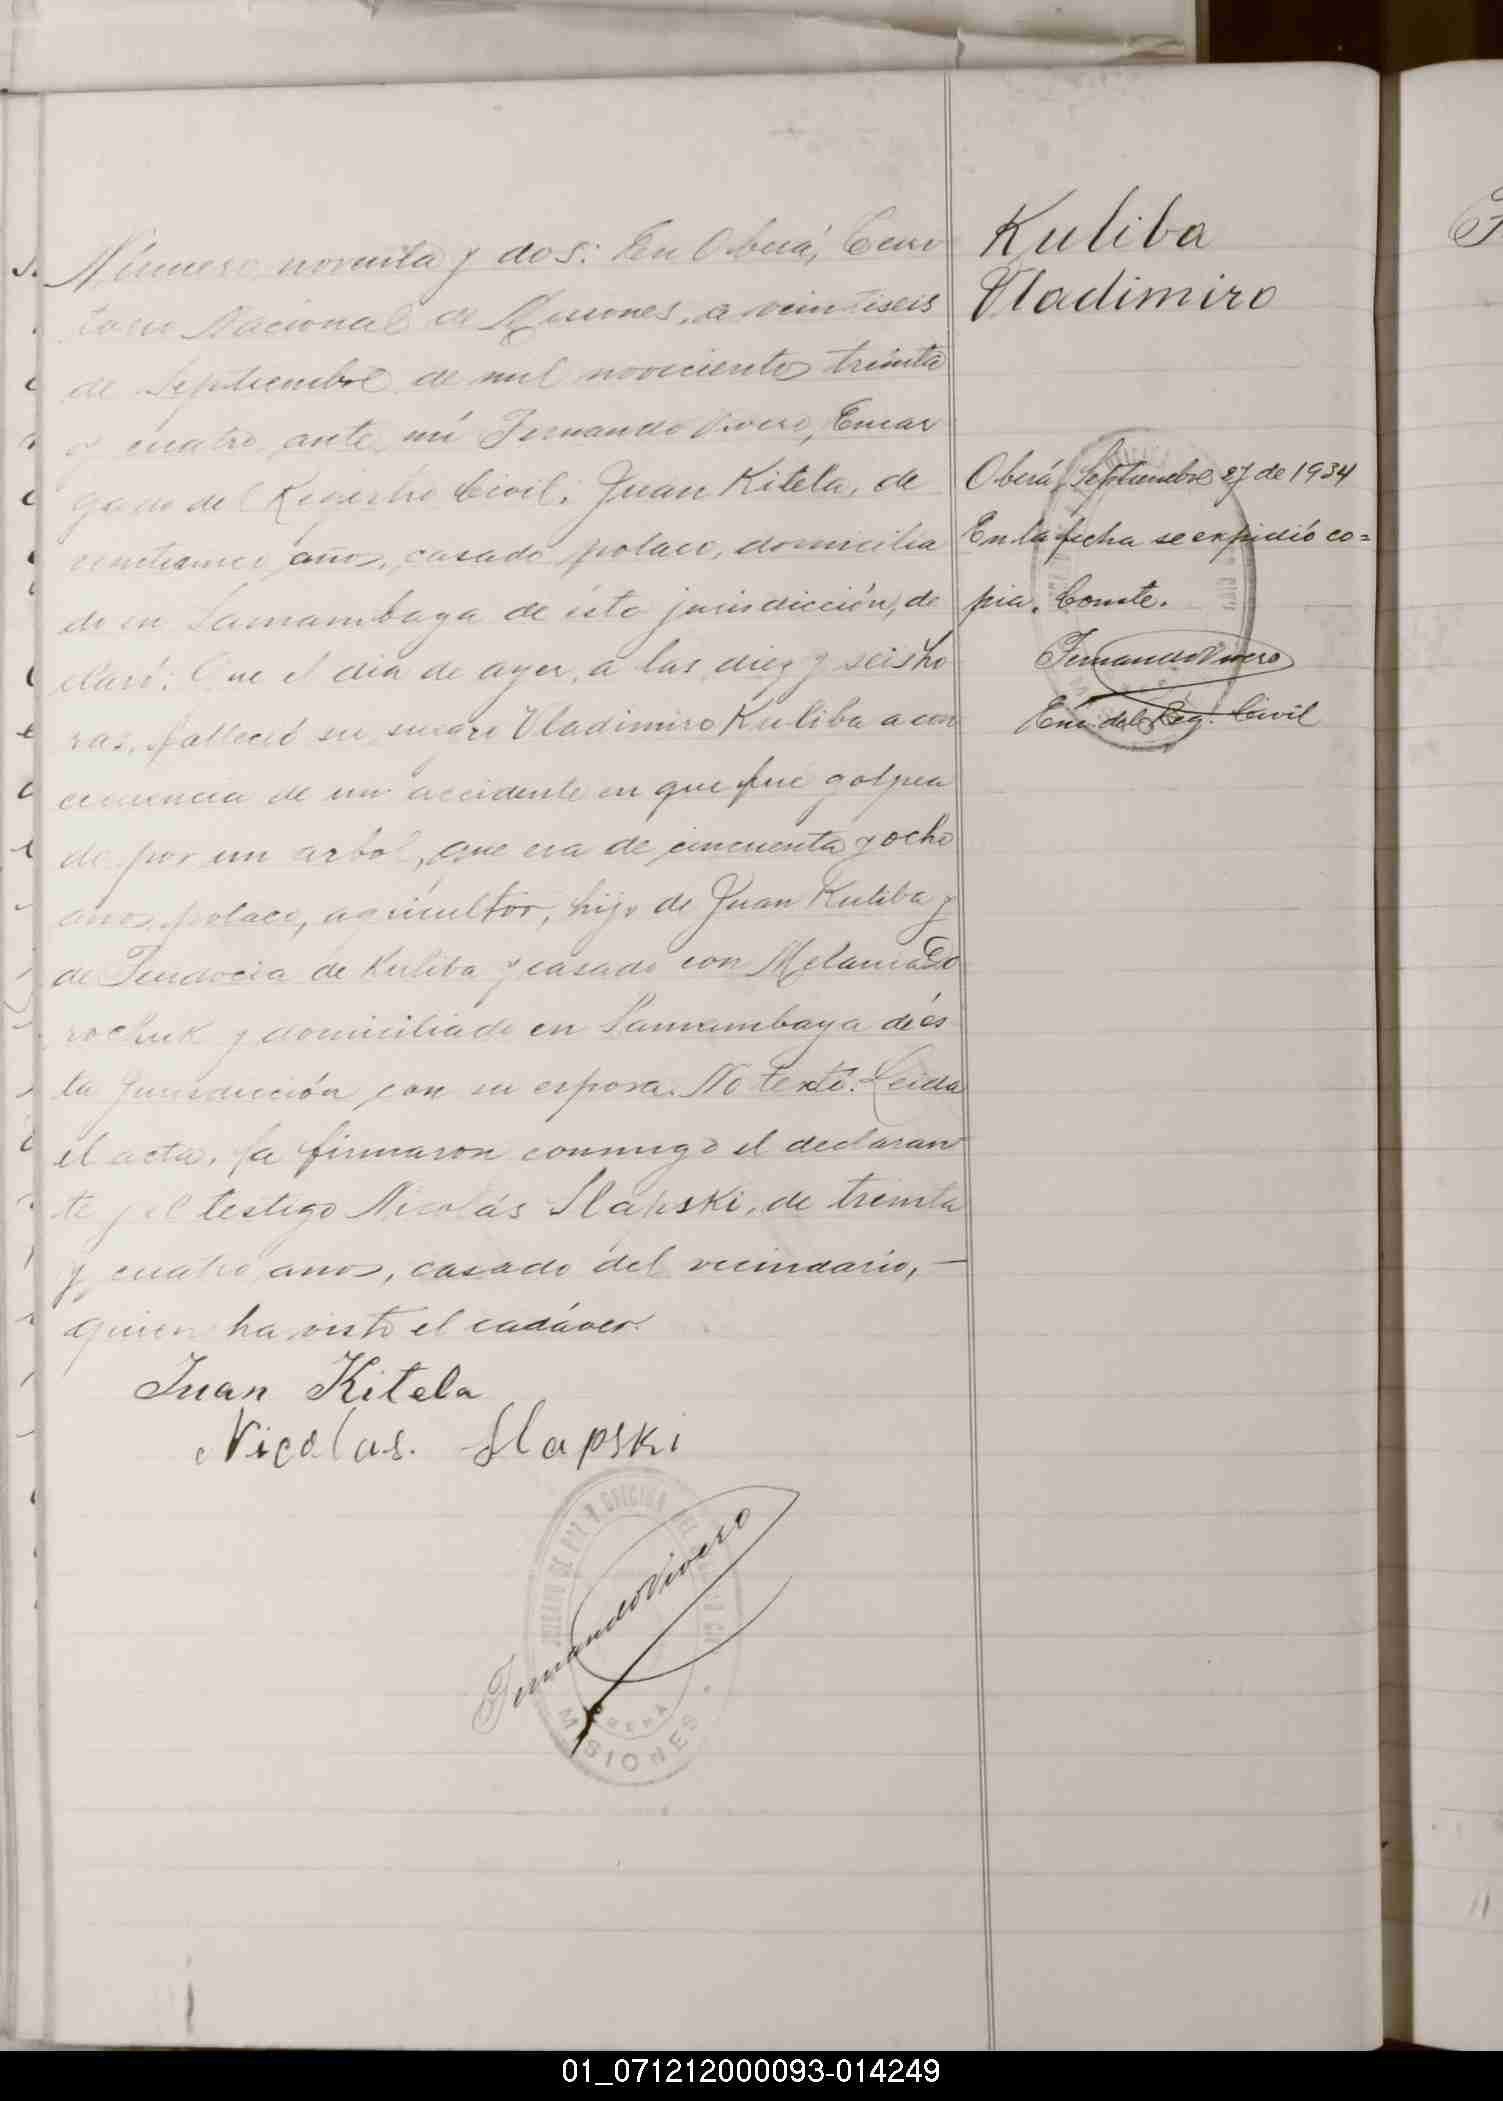 Número noventa y dos: En Oberá, Terri
torio Nacional de Misiones, a veintiseis
de Septiembre de mil novecientos treinta
y cuatro, ante mí Fernando Vivero, Encar
gado del Registro Civil, Juan Kitela, de
veinticinco años, casado polaco, domicilia
do en Samambaya de ésta jurisdicción, de
claró: Que el día de ayer, a las diez y seis ho
ras, falleció su suegro Vladimiro Kuliba a con
cecuencia de un accidente en que fué golpea
do por un arbol, que era de cincuenta y ocho
años, polaco, agricultor, hijo de Juan Kuliba y
de Feudocia de Kuliba y casado con Melania Do
rochuk y domiciliado en Samambaya de és
ta jurisdicción con su esposa. No testó. Leida
el acta, la firmaron conmigo el declaran
te y el testigo Nicolás Slapski, de treinta
y cuatro años, casado del vecindario, —
quien ha visto el cadáver.
Juan Kitela
Nicolas. Slapski
Fernando Vivero
JUZGADO DE PAZ Y OFICINA DEL
OBERÁ
MISIONES
Kuliba
Vladimiro
Oberá, Septiembre 27 de 1934
En la fecha se expidió co=
pia. Conste.
Fernando Vivero
Enc. del Reg. Civil
01_071212000093-014249